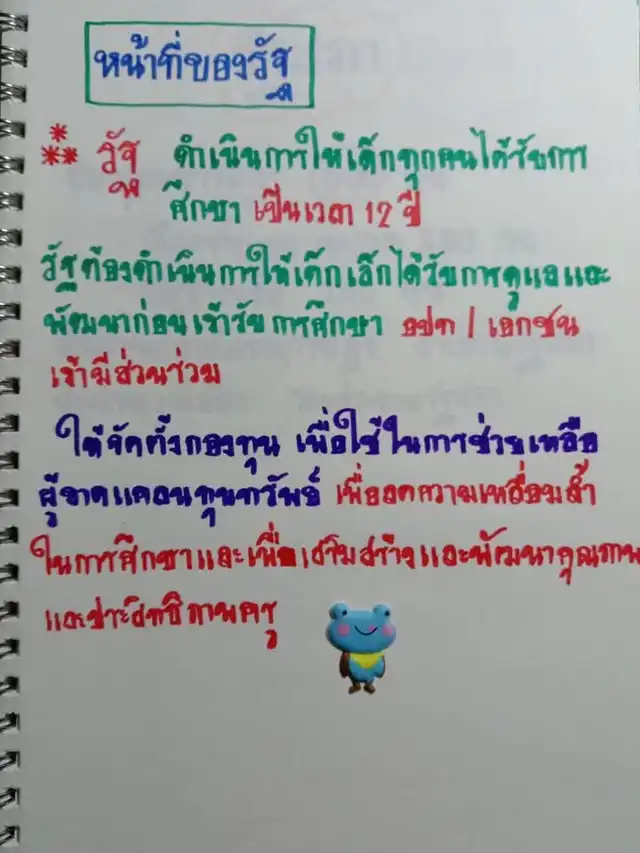 หน้าที่ของรัฐ
*** รัฐ ดำเนินการให้เด็กทุกคนได้รับการ
ศึกษา เป็นเวลา 12 ปี
รัฐต้องดำเนินการให้เด็กเล็กได้รับการดูแลและ
พัฒนาก่อนเข้ารับการศึกษา อปท / เอกชน
เข้ามีส่วนร่วม
ให้จัดตั้งกองทุน เพื่อใช้ในการช่วยเหลือ
ผู้ขาดแคลนทุนทรัพย์ เพื่อลดความเหลื่อมล้ำ
ในการศึกษาและเพื่อเสริมสร้างและพัฒนาคุณภาพ
และประสิทธิภาพครู